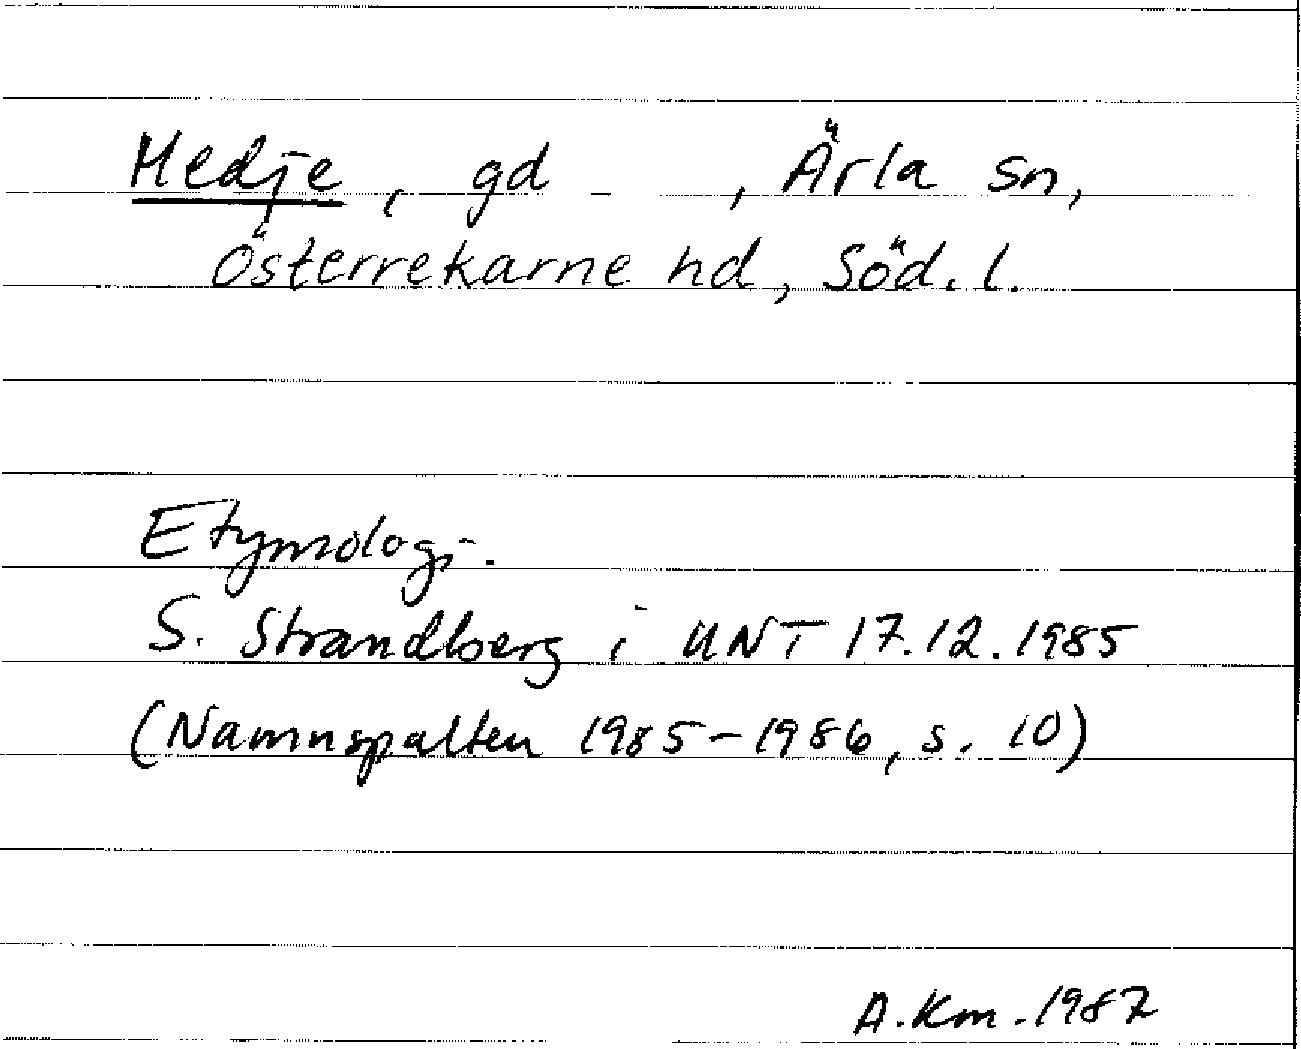 Medje, gd - , Ärla sn,
Österrekarne hd, Söd. l.
Etymologi.
S. Strandberg i UNT 17.12.1985
(Namnspalten 1985-1986, s. 10)
A.Km. 1987